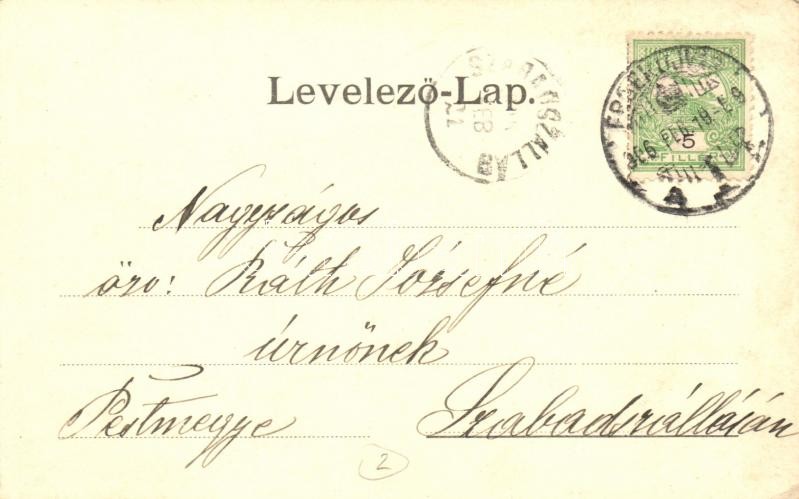 Levelező-Lap.
SZABADSZÁLLÁS
ÉRSEKUJVÁR
5
FILLÉR
Nagyságos
özv: Ráth Józsefné
úrnőnek
Pestmegye Szabadszállásán
2